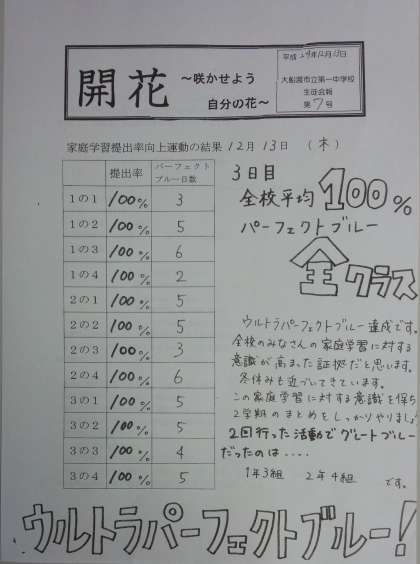 開花
～咲かせよう
自分の花～
大船渡市立第一中学校
生徒会報
第7号
家庭学習提出率向上運動の結果 12月13日 (木)
提出率 パーフェクトブルー日数
1の1 100% 3
1の2 100% 5
1の3 100% 6
1の4 100% 2
2の1 100% 5
2の2 100% 5
2の3 100% 3
2の4 100% 6
3の1 100% 5
3の2 100% 5
3の3 100% 4
3の4 100% 5
3日目
全校平均100%
パーフェクトブルー
全クラス
ウルトラパーフェクトブルー達成です。
全校のみなさんの家庭学習に対する
意識が高まった証拠だと思います。
冬休みも近づいてきています。
この家庭学習に対する意識を保ち
2学期のまとめをしっかりやりましょ
2回行った活動でグレートブルー
だったのは・・・・
1年3組 2年4組 です。
ウルトラパーフェクトブルー!